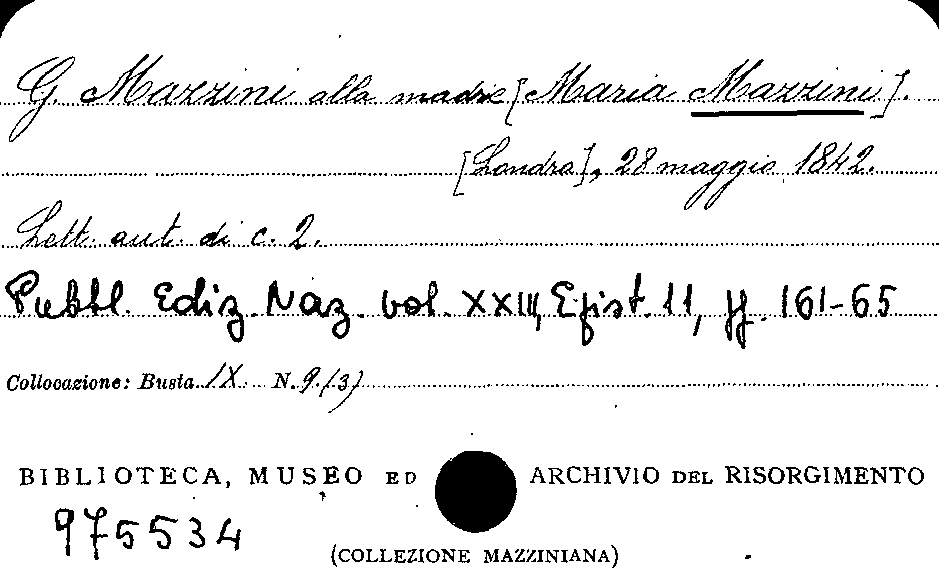 G. Mazzini alla madre [Maria Mazzini].
[Londra], 28 maggio 1842.
Lett. aut. di c. 2.
Pubbl. Ediz. Naz. vol. XXIII, Epist. 11, pp. 161-65
Collocazione: Busta IX N. 9.(3)
BIBLIOTECA, MUSEO ED ARCHIVIO DEL RISORGIMENTO
975534
(COLLEZIONE MAZZINIANA)